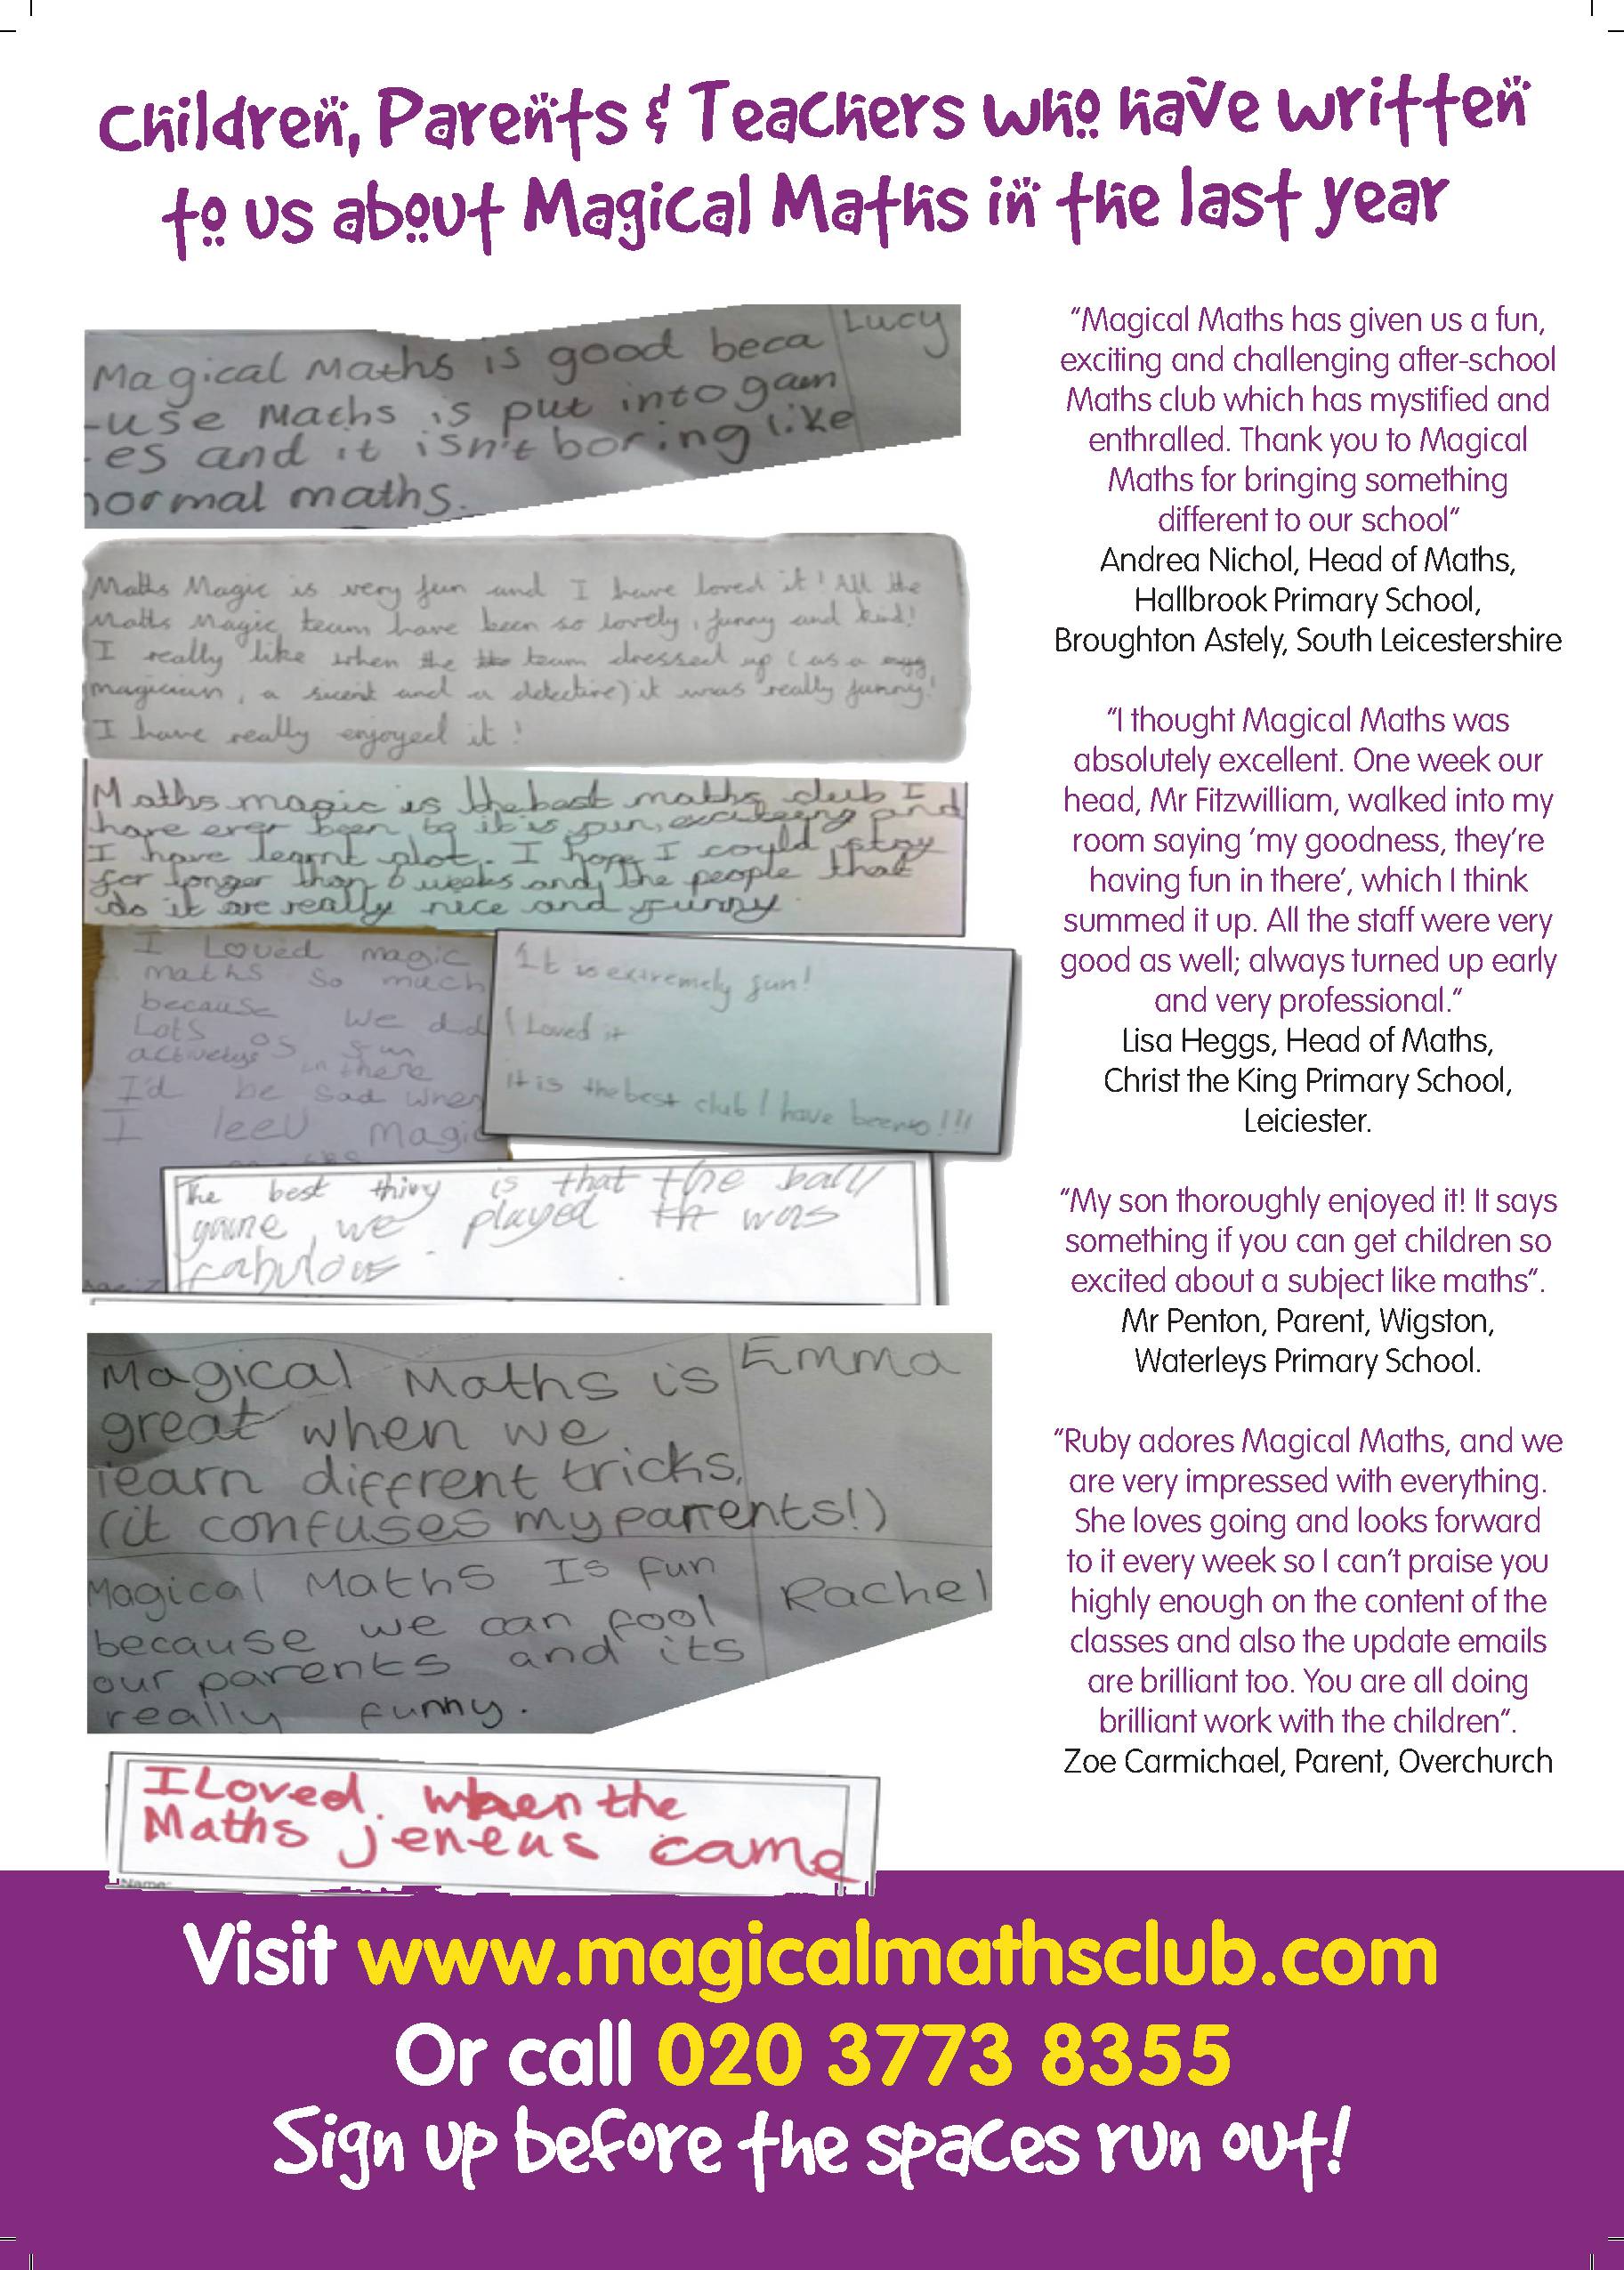 Children, Parents & Teachers who have written
to us about Magical Maths in the last year
Magical Maths is good beca
-use Maths is put into gam
-es and it isn't boring like
normal maths.
Lucy
Maths Magic is very fun and I have loved it! All the
Maths Magic team have been so lovely, funny and kind!
I really like when the the team dressed up (as a
magician, a sicent and a detective) it was really funny!
I have really enjoyed it!
Maths magic is the best maths club I
have ever been to it is fun, exciteing and
I have learnt alot. I hope I could stay
for longer than 6 weeks and the people that
do it are really nice and funny.
I Loved magic
maths so much
because we did
Lots of fun
activetys in there
I'd be sad when
I leev magic
It is extremely fun!
I Loved it
It is the best club I have been to!!!
The best thing is that the ball
game we played it was
fabulous.
Magical Maths is
great when we
learn different tricks,
(it confuses my parents!)
Emma
Magical Maths Is fun
because we can fool
our parents and its
really funny.
Rachel
I Loved. when the
Maths jeneus came
Name:
“Magical Maths has given us a fun,
exciting and challenging after-school
Maths club which has mystified and
enthralled. Thank you to Magical
Maths for bringing something
different to our school”
Andrea Nichol, Head of Maths,
Hallbrook Primary School,
Broughton Astely, South Leicestershire
“I thought Magical Maths was
absolutely excellent. One week our
head, Mr Fitzwilliam, walked into my
room saying ‘my goodness, they’re
having fun in there’, which I think
summed it up. All the staff were very
good as well; always turned up early
and very professional.”
Lisa Heggs, Head of Maths,
Christ the King Primary School,
Leiciester.
“My son thoroughly enjoyed it! It says
something if you can get children so
excited about a subject like maths”.
Mr Penton, Parent, Wigston,
Waterleys Primary School.
“Ruby adores Magical Maths, and we
are very impressed with everything.
She loves going and looks forward
to it every week so I can’t praise you
highly enough on the content of the
classes and also the update emails
are brilliant too. You are all doing
brilliant work with the children”.
Zoe Carmichael, Parent, Overchurch
Visit www.magicalmathsclub.com
Or call 020 3773 8355
Sign up before the spaces run out!